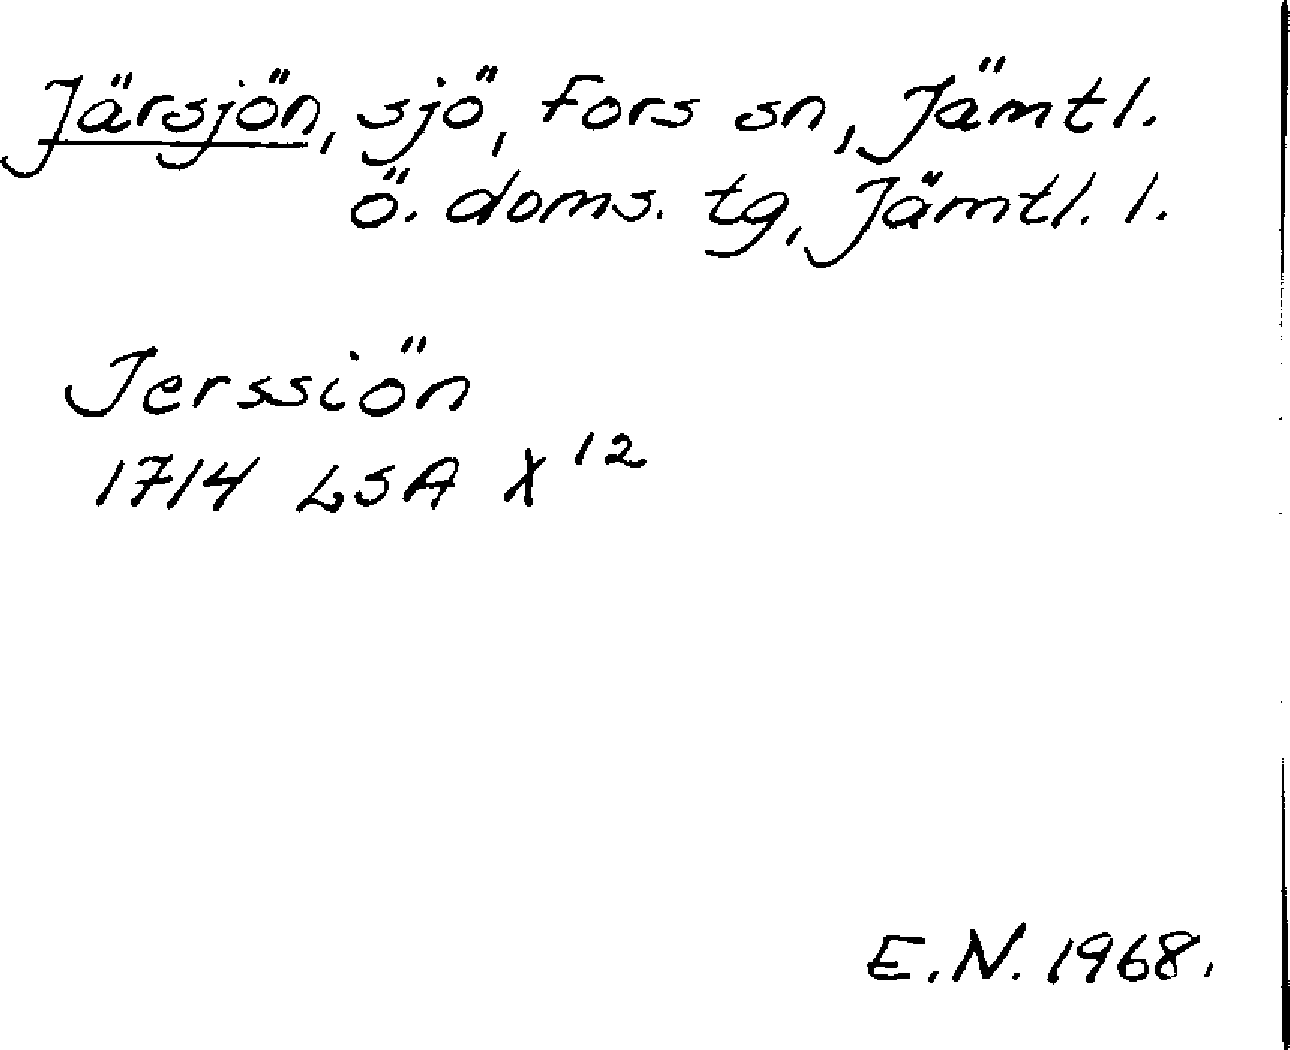 Järsjön, sjö, Fors sn, Jämtl.
ö. doms. tg, Jämtl. l.
Jerssiön
1714 LSA X 12
E.N. 1968.